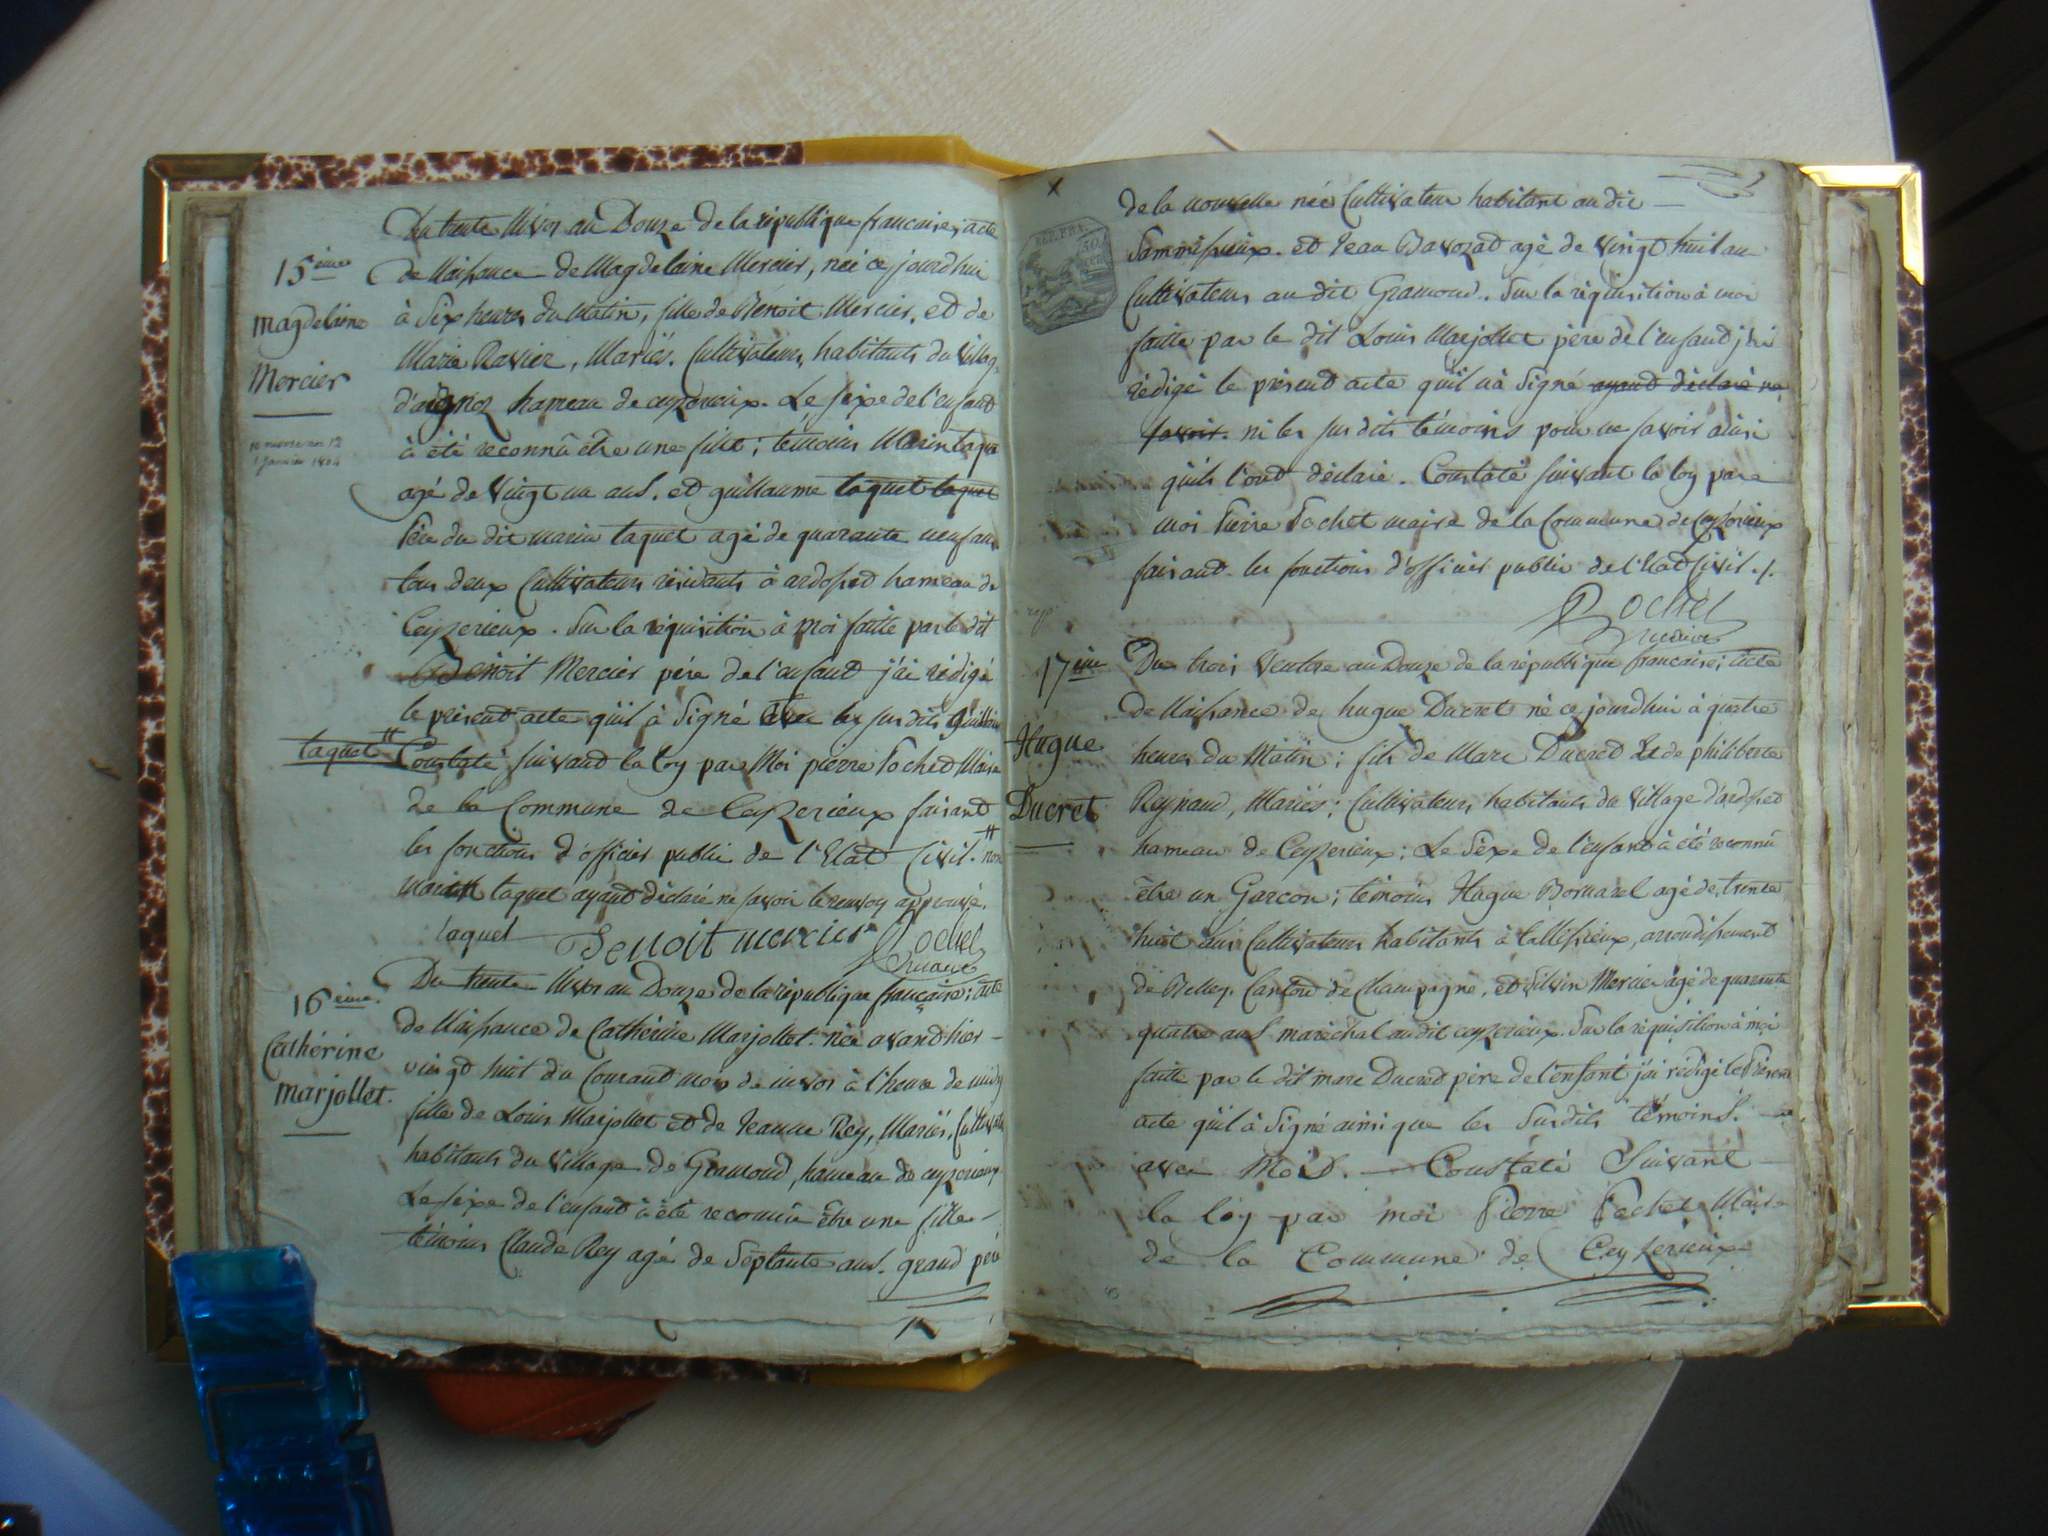 15ème
Magdeleine
Mercier
1 janvier 1804
Du trente Nivos an Douze de la république francaise; acte
de Naissance de Magdeleine Mercier, née ce jourdhui
à Six heures du Matin, fille de Benoit Mercier, et de
Marie Ravier, Mariés. Cultivateurs, habitants du Village
hameau de ceyzerieux. Le sexe de l'enfant
à été reconnû être une fille; témoins Marin taquet
agé de vingt un ans. et guillaume taquet taquet
Père du dit marin taquet agé de quarante neuf ans
tous deux Cultivateurs résidants à ardosset hameau de
Ceyzerieux. Sur la réquisition à moi faitte par le dit
Benoit Mercier pére de l'enfant j'ai rédigé
le présent acte qu'il à Signé avec les sus dits guillaume
taquet" Constaté suivant la loy par Moi pierre Pochet Maire
de la Commune de Ceyzerieux faisant
les fonctions d'officier public de l'Etat Civil." non
marin taquet ayant déclaré ne savoir le renvoy approuvé.
taquet Benoit mercier Pochet
maire
16ème
Catherine
marjollet.
Du trente Nivos an Douze de la république française; acte
de Naissance de Catherine Marjollet. née avand hier
vingt huit du Courant mois de nivos à l'heure de midy
fille de Louis Marjollet et de Jeanne Rey, Mariés, Cultivateurs
habitants du village de Gramond, hameau de ceyzerieux
Le sexe de l'enfant à été reconnû Être une fille
témoins Claude Rey agé de Septante ans. grand pére
de la nouvelle née Cultivateur habitant au dit
et Jean Bavozat agé de vingt huit an
Cultivateur au dit Gramond. Sur la réquisition à moi
faitte par le dit Louis Marjollet père de l'enfant j'ai
rédigé le présent acte qu'il n'à Signé ayant déclaré ne
savoir. ni les sus dits témoins pour ne savoir ainsi
qu'ils l'ont déclaré. Constaté suivant la loy par
moi Pierre Pochet maire de la Commune de Ceyzérieux
faisant les fonctions d'officier public de l'Etat Civil./.
Pochet
maire
17ème
Hugue
Ducret
Du trois Ventose an Douze de la république francaise; acte
de Naissance de hugue Ducret né ce jourdhui à quatre
heures du Matin; fils de Marc Ducret Et de philiberte
Reynaud, Mariés; Cultivateurs habitants du village d'ardosset
hameau de Ceyzerieux; Le Séxe de l'enfant à été reconnû
être un Garcon; témoins Hugue Bornarel agé de trente
huit ans Cultivateur habitants à tallissieux, arrondissement
de Belley. Canton de Champagne, et Silvin Mercier agé de quarante
quatre ans maréchal au dit ceyzerieux. Sur la réquisition à moi
faitte par le dit marc Ducret père de l'enfant j'ai rédigé le Présent
acte qu'il à Signé ainsi que les Susdits témoins.
avec Moi. Constaté Suivant
la loy par moi Pierre Pochet Maire
de la Commune de Ceyzerieux